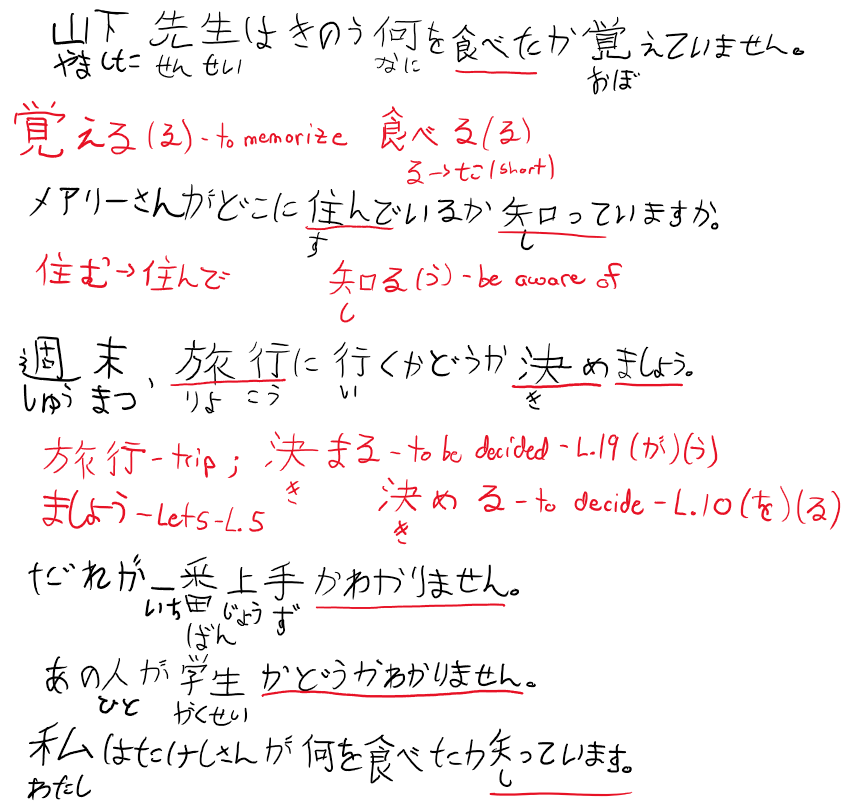 山下先生はきのう何を食べたか覚えていません。
やました せんせい なに おぼ
覚える(る)-to memorize 食べる(る)
る→た(short)
メアリーさんがどこに住んでいるか知っていますか。
す し
住む→住んで 知る(う)-be aware of
し
週末、旅行に行くかどうか決めましょう。
しゅう まつ りょ こう い き
旅行-trip; 決まる-to be decided-L.19(が)(う)
き
ましょう-Lets-L.5 決める-to decide-L.10(を)(る)
き
だれが一番上手かわかりません。
いち ばん じょう ず
あの人が学生かどうかわかりません。
ひと がくせい
私はたけしさんが何を食べたか知っています。
わたし し